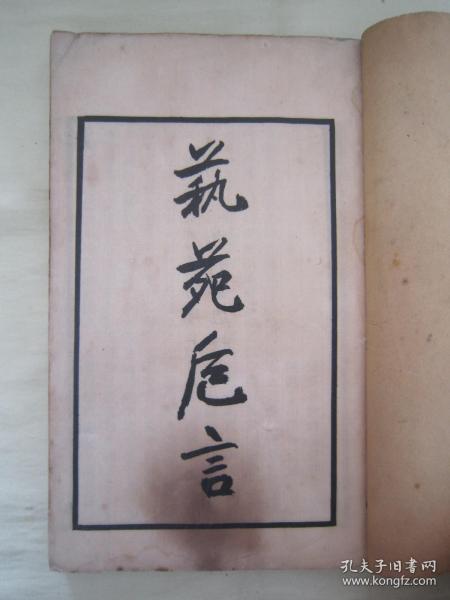 蓺苑卮言
孔夫子旧书网
www.kongfz.com